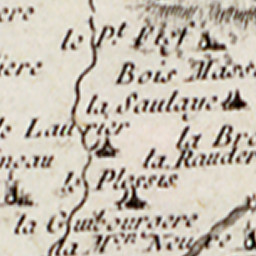 le Pt. Fief
Bois Mass
la Saulaye
le Laurier
la Bro
neau
la Rauder
le Plessis
la Guibourgere
la Mon. Neuve